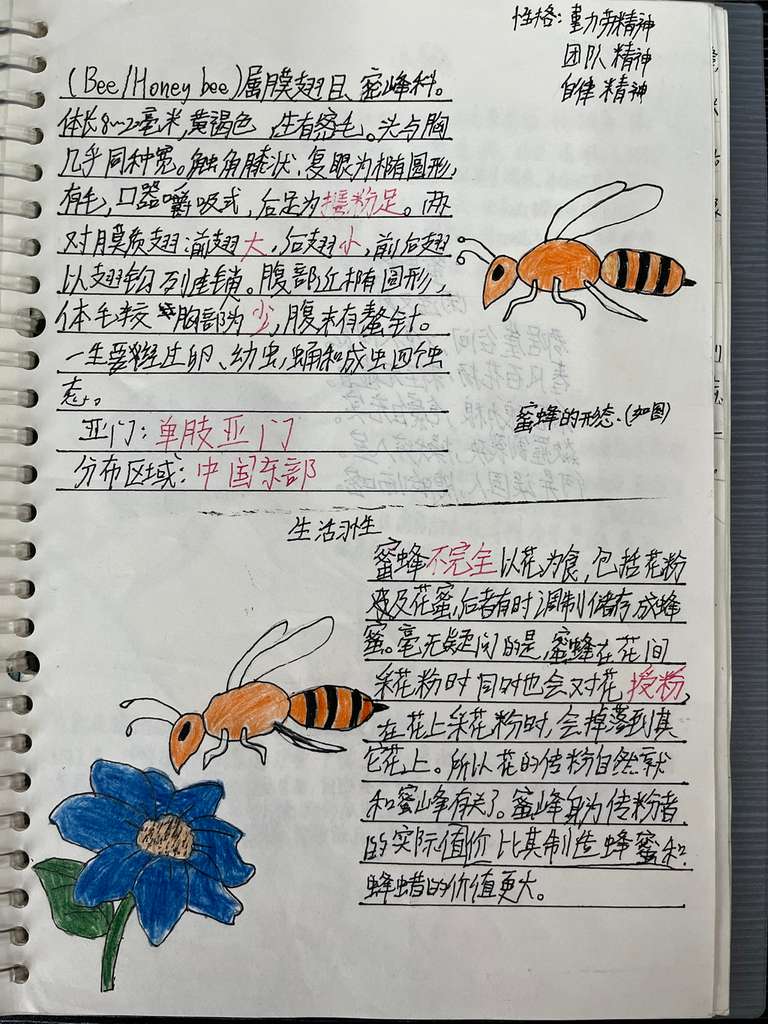 性格：勤劳精神
团队精神
自律精神
(Bee/Honey bee)属膜翅目、蜜蜂科。
体长8~20毫米，黄褐色，生有密毛。头与胸
几乎同种宽。触角膝状，复眼为椭圆形，
有毛，口器嚼吸式，后足为携粉足。两
对膜质翅：前翅大，后翅小，前后翅
以翅钩列连锁。腹部近椭圆形，
体毛较胸部为少，腹末有螫针。
一生要经过卵、幼虫、蛹和成虫四个虫
态。
亚门：单肢亚门
分布区域：中国东部
蜜蜂的形态.(如图)
生活习性
蜜蜂不完全以花为食，包括花粉
及花蜜，后者有时调制储存成蜂
蜜。毫无疑问的是，蜜蜂在花间
采花粉时同时也会对花授粉，
在花上采花粉时，会掉落到其
它花上。所以花的传粉自然就
和蜜蜂有关了。蜜蜂身为传粉者
的实际值价比其制造蜂蜜和
蜂蜡的价值更大。